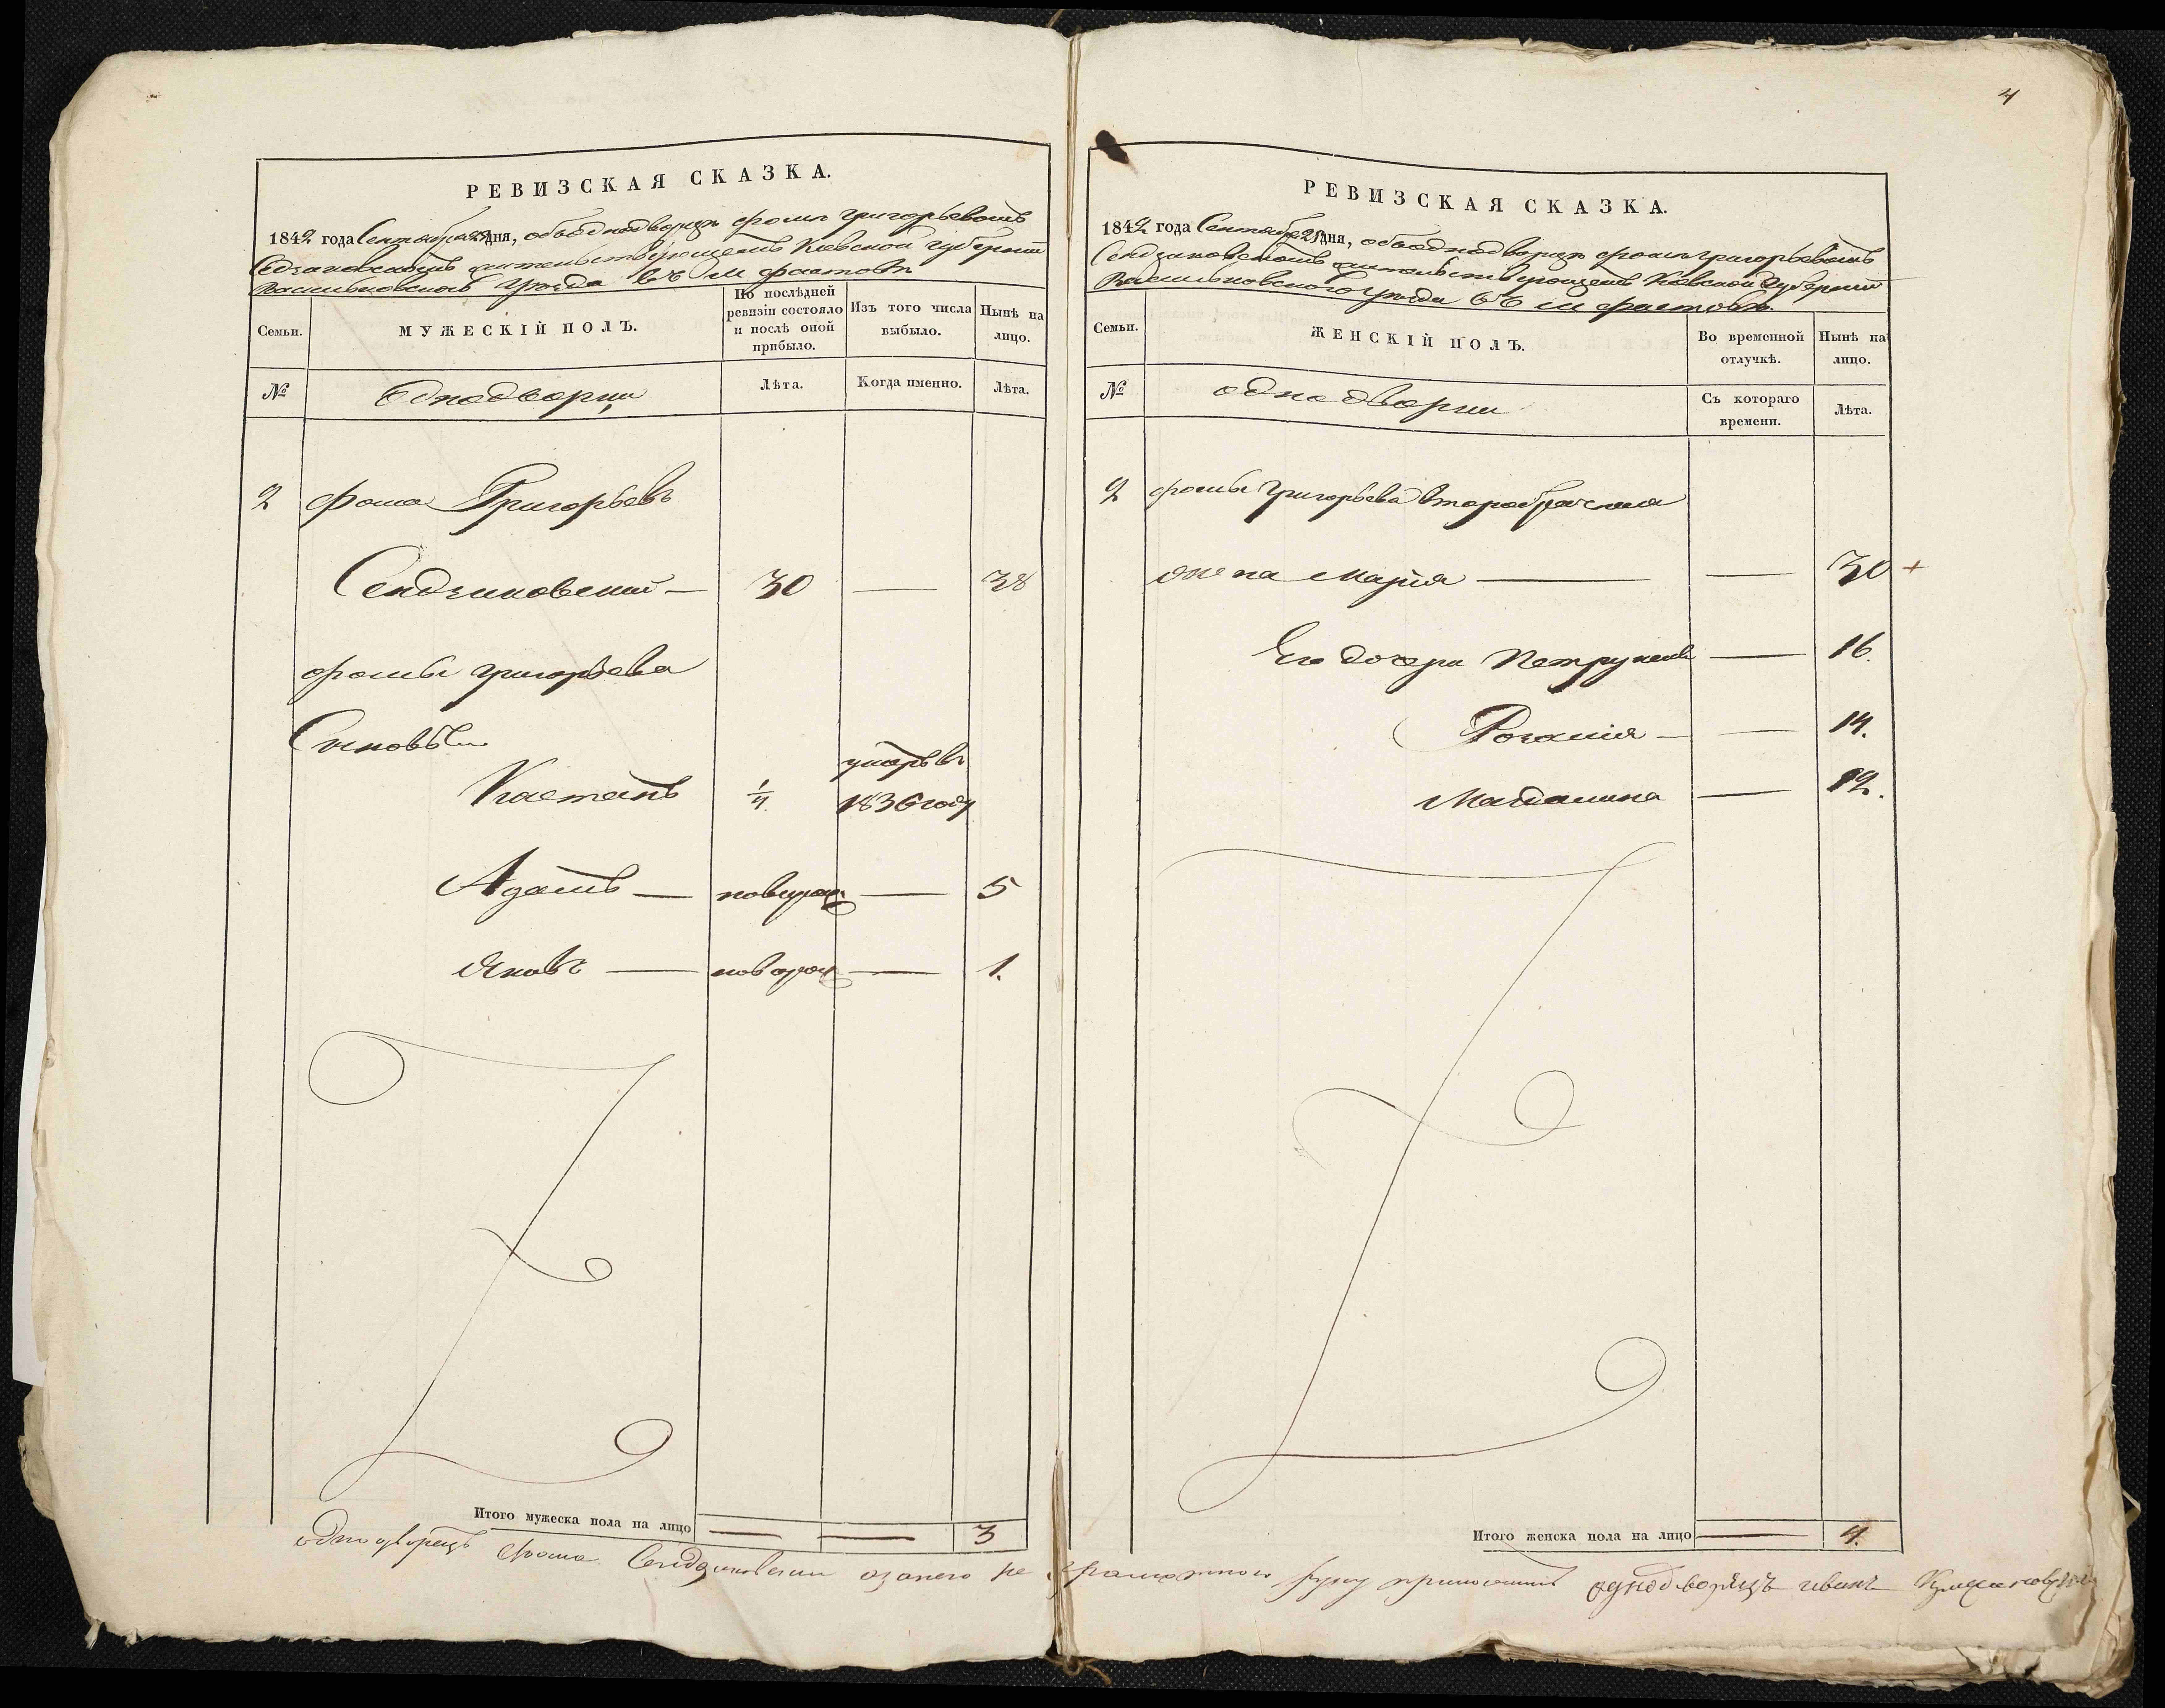 4
РЕВИЗСКАЯ СКАЗКА.
1842 года Сентября дня, объ однодворцѣ Фомѣ Григорьевомъ
жительствующемъ Кіевской губерніи
Васильковского уѣзда въ м Фастовѣ
Семьи.
МУЖЕСКІЙ ПОЛЪ.
По послѣдней ревизіи состояло и послѣ оной прибыло.
Изъ того числа выбыло.
Нынѣ на лицо.
№
Однодворцы
Лѣта.
Когда именно.
Лѣта.
2 Фома Григорьевъ
Сендзиковский — 30 — 38
Фомы Григорьева
Сыновья
умеръ въ
Каетанъ 1/4 1836 году
Адамъ — новорож — 5
Яковъ — новорож — 1.
Итого мужеска пола на лицо — — 3
РЕВИЗСКАЯ СКАЗКА.
1842 года Сентября 25 дня, объ однодворцѣ Фомѣ Григорьевомъ
Сендзиковскомъ жительствующемъ Кіевской Губерніи
Васильковского уѣзда въ м Фастовѣ.
Семьи.
ЖЕНСКІЙ ПОЛЪ.
Во временной отлучкѣ.
Нынѣ на лицо.
№
однодворцы
Съ котораго времени.
Лѣта.
2 Фомы Григорьева второбрачная
жена Марія — — 30 +
Его дочери Петрунеля — 16.
Розалія — — 14.
Магдалина — 12.
Итого женска пола на лицо — 4.
однодворецъ Фома Сендзиковский а за него не грамотного руку приложилъ однодворецъ иванъ